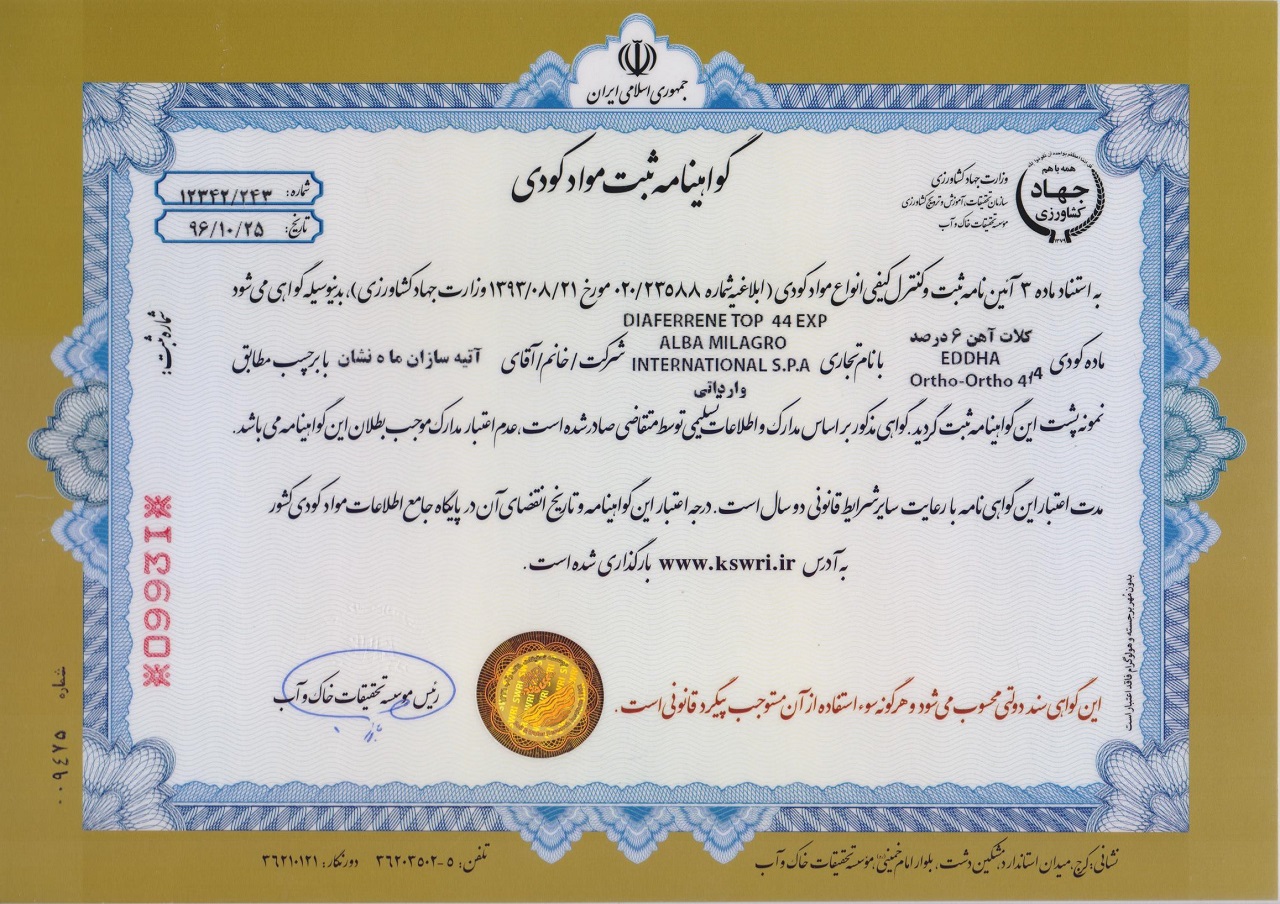 جمهوری اسلامی ایران
گواهینامه ثبت مواد کودی
همه با هم
جهاد
کشاورزی
۱۳۷۹
وزارت جهاد کشاورزی
سازمان تحقیقات، آموزش و ترویج کشاورزی
موسسه تحقیقات خاک و آب
شماره: ۱۲۳۴۲/۲۴۳
تاریخ: ۹۶/۱۰/۲۵
به استناد ماده ۳ آئین نامه ثبت و کنترل کیفی انواع مواد کودی (ابلاغیه شماره ۰۲۰/۲۳۵۸۸ مورخ ۱۳۹۳/۰۸/۲۱ وزارت جهاد کشاورزی)، بدینوسیله گواهی می شود
ماده کودی کلات آهن ۶ درصد EDDHA Ortho-Ortho 4,4 با نام تجاری DIAFERRENE TOP 44 EXP ALBA MILAGRO INTERNATIONAL S.P.A وارداتی شرکت/خانم/آقای آتیه سازان ماه نشان با برچسب مطابق
نمونه پشت این گواهینامه ثبت گردید. گواهی مذکور بر اساس مدارک و اطلاعات تسلیمی توسط متقاضی صادر شده است، عدم اعتبار مدارک موجب بطلان این گواهینامه می باشد.
مدت اعتبار این گواهی نامه با رعایت سایر شرایط قانونی دو سال است. درجه اعتبار این گواهینامه و تاریخ انقضای آن در پایگاه جامع اطلاعات مواد کودی کشور
به آدرس www.kswri.ir بارگذاری شده است.
شماره ثبت:
※0993I※
شماره ۰۰۹۴۷۵
بدون مُهر برجسته و هولوگرام فاقد اعتبار است
این گواهی سند دولتی محسوب می شود و هرگونه سوء استفاده از آن مستوجب پیگرد قانونی است.
رئیس موسسه تحقیقات خاک و آب
نشانی: کرج، میدان استاندارد، مشکین دشت، بلوار امام خمینی، موسسه تحقیقات خاک و آب
تلفن: ۵-۳۶۲۰۳۵۰۲ دورنگار: ۳۶۲۱۰۱۲۱